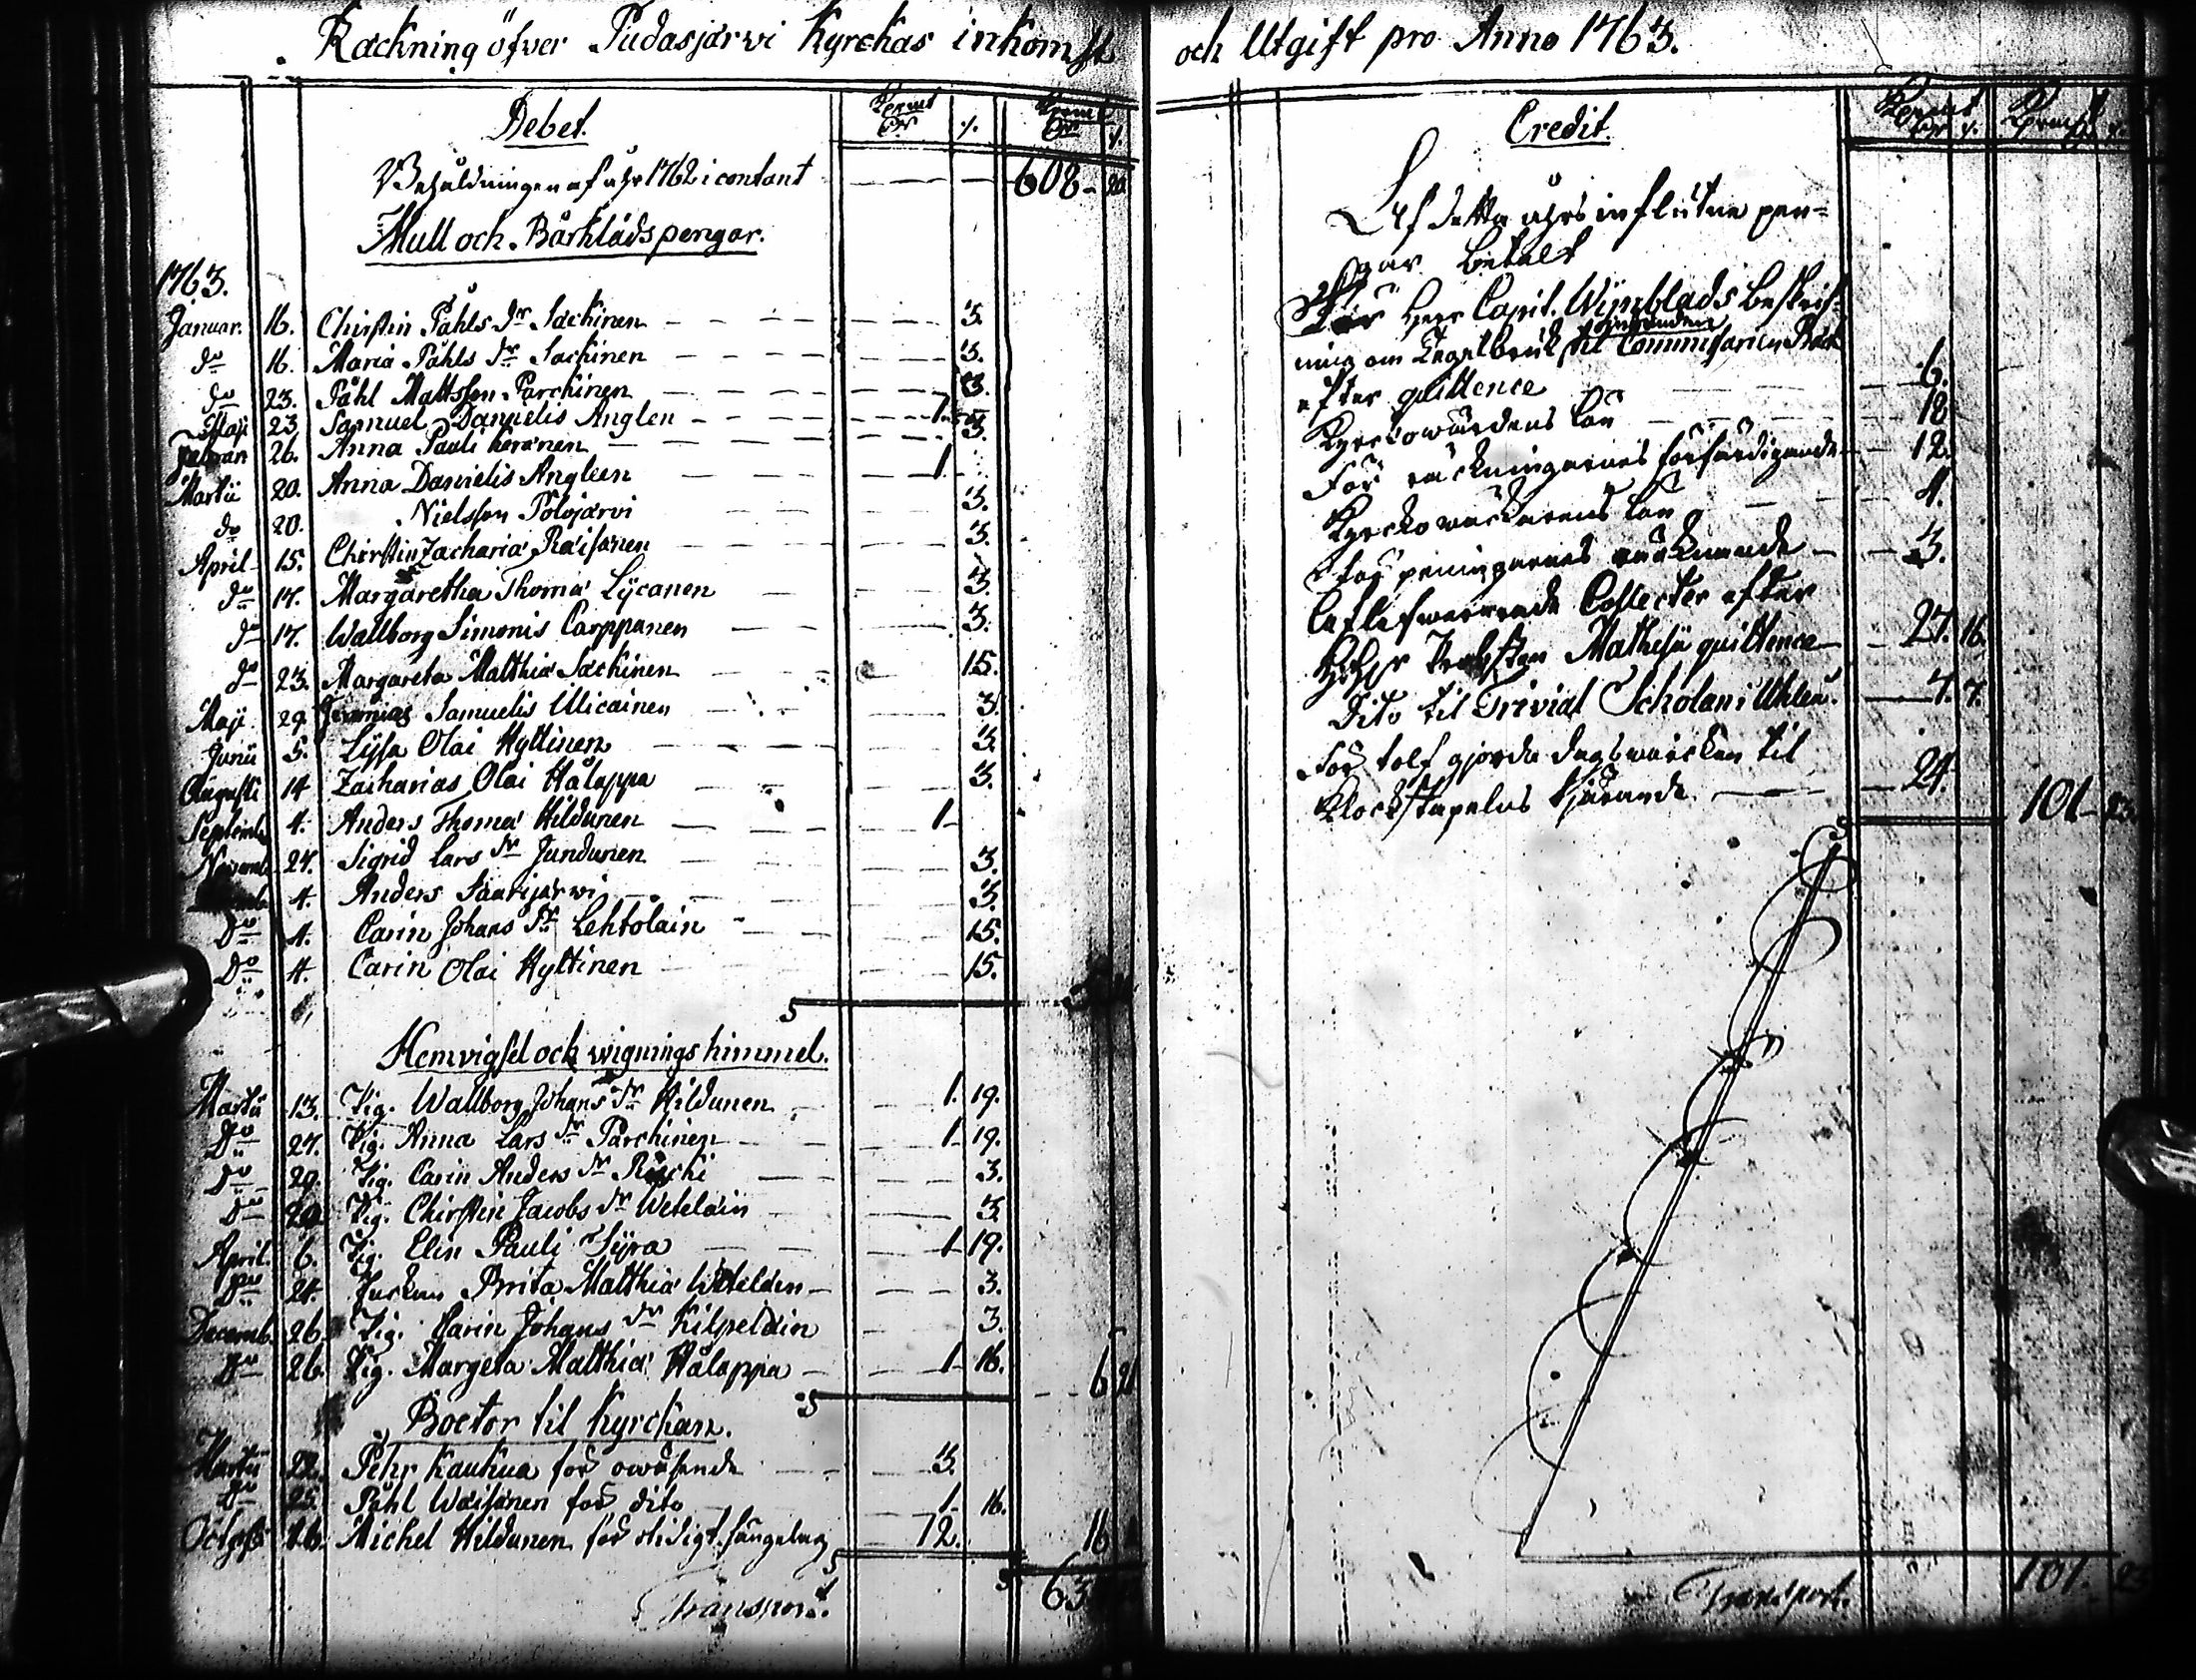 Räckning öfver Pudasjärvi Kyrckas inkomst
Debet.
Behåldningen af åhr 1762 i contant 608 20
Mull och Bårklädspengar.
1763.
Januar. 16. Chirstin Påhls dr Säckinen 3.
do 16. Maria Påhls dr Säckinen 3.
do 23. Påhl Mattsson Parckinen 3.
23. Samuel Danielis Anglen 1.
26. Anna Pauli Keränen 3.
Martii 20. Anna Danielis Angleen 1
do 20. Nielsson Pölöjärvi 3.
April 15. Chirstin Zachariä Räisänen 3.
do 17. Margaretha Thomä Lycanen 3.
do 17. Wallborg Simonis Carppanen 3.
do 23. Margareta Matthiä Säckinen 15.
Maji 29. Jeremias Samuelis Ulicainen 3.
Junii 5. Lysa Olai Hyttinen 3.
Augusti 14 Zacharias Olai Hålappa 3.
Septemb 4. Anders Thomæ Hildunen 1
Novemb 27. Sigrid Lars dr Jundunen 3.
4. Anders Saarijärwi 3.
Do 4. Carin Johans dr Lehtolain 15.
Do 4. Carin Olai Hyttinen 15.
Hemvigsel och wignings himmel.
Martii 13. Pig. Wallborg Johans dr Hildunen 1. 19.
Do 27. Pig. Anna Lars dr Parckinen 1 19.
Do 29. Pig. Carin Anders dr 3.
Do 29 Pig. Chirstin Jacobs dr Weteläin 3
April. 6. Pig. Elin Pauli Syra 1 19.
Do 24. Brita Matthiä Weteläin 3.
Decemb. 26. Pig. Carin Johans dr Kilpeläin 3.
Do 26. Pig. Margeta Matthiä Hålappa 1 16. 6 21
Boetor til Kyrckan.
Martii 22. Pehr Kaukua för owäsende 3.
Do 25. Påhl Wäisänen för dito 1 16.
26. Michel Hildunen för otidigt sängelag 12. 16
Transport.
och Utgift pro Anno 1763.
Credit.
Af detta åhrs influtne pen=
gar betalt
För Herr Capit. Wynblads beskrif=
ning om Tegelbruk til Commissarien
efter quittence 6.
Kyrckowärdens lön 18
För räckningarnes förfärdigande 12.
Kyrckowäcktarens lön 4.
För penningarnes räcknande 3.
Lefwererade Collecter efter
Herr Probsten Mathesii quittence 27. 16.
Dito til Trivial Scholan i Uhleå. 7. 7.
För tolf gjorda dagswärcken til
Klockstapelns tjärande 24. 101 23
Transport. 101. 23